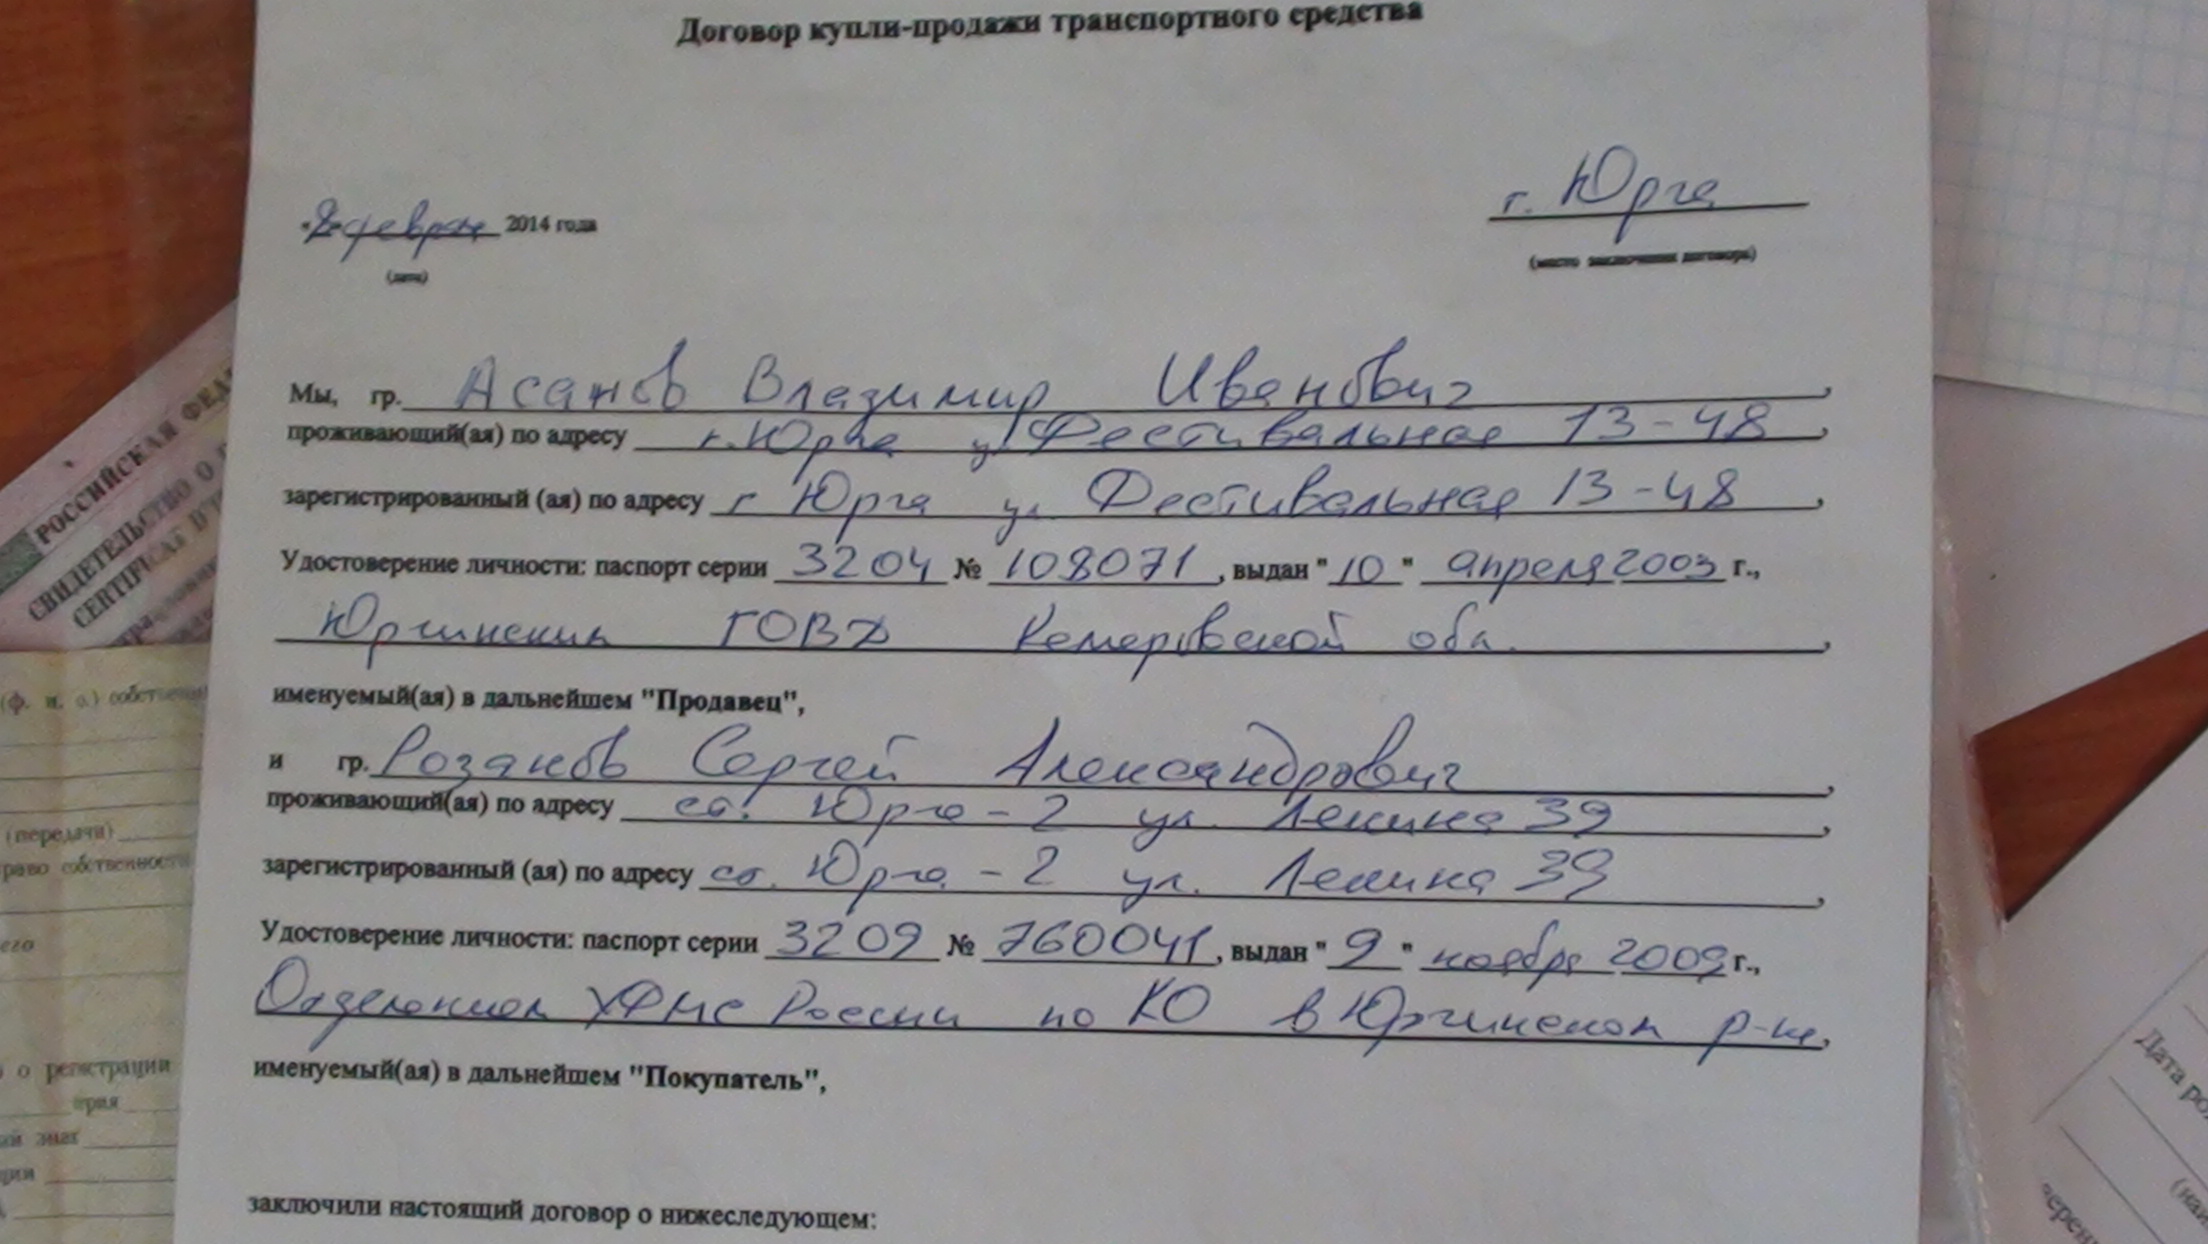 Договор купли-продажи транспортного средства
г. Юрга
"8" февраля 2014 года
(дата)
(место заключения договора)
Мы, гр. Асанов Владимир Иванович,
проживающий(ая) по адресу г. Юрга ул Фестивальная 13-48,
зарегистрированный (ая) по адресу г Юрга ул. Фестивальная 13-48,
Удостоверение личности: паспорт серии 3204 № 108071, выдан "10" апреля 2003 г.,
Юргинским ГОВД Кемеровской обл.,
именуемый(ая) в дальнейшем "Продавец",
и гр. Розанов Сергей Александрович,
проживающий(ая) по адресу ст. Юрга-2 ул. Ленина 39,
зарегистрированный (ая) по адресу ст. Юрга-2 ул. Ленина 39,
Удостоверение личности: паспорт серии 3209 № 760041, выдан "9" ноября 2009 г.,
Отделением УФМС России по КО в Юргинском р-не,
именуемый(ая) в дальнейшем "Покупатель",
заключили настоящий договор о нижеследующем:
РОССИЙСКАЯ ФЕД
СВИДЕТЕЛЬСТВО О
CERTIFICAT D'I
(ф. и. о.) собствен
(передачи)
раво собственности
его
о регистрации
ерия
знак
ции
Дата ро